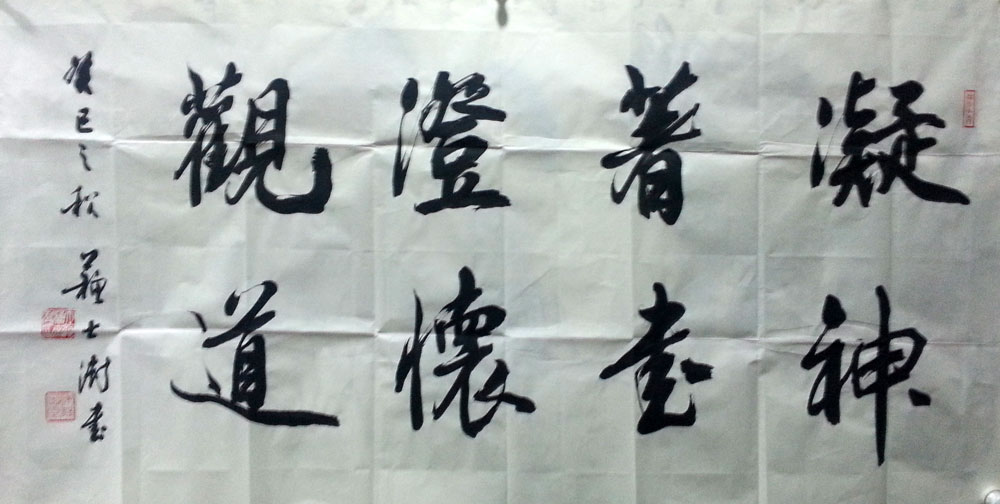 凝神
著書
澄懷
觀道
癸巳之秋 蘇士澍書